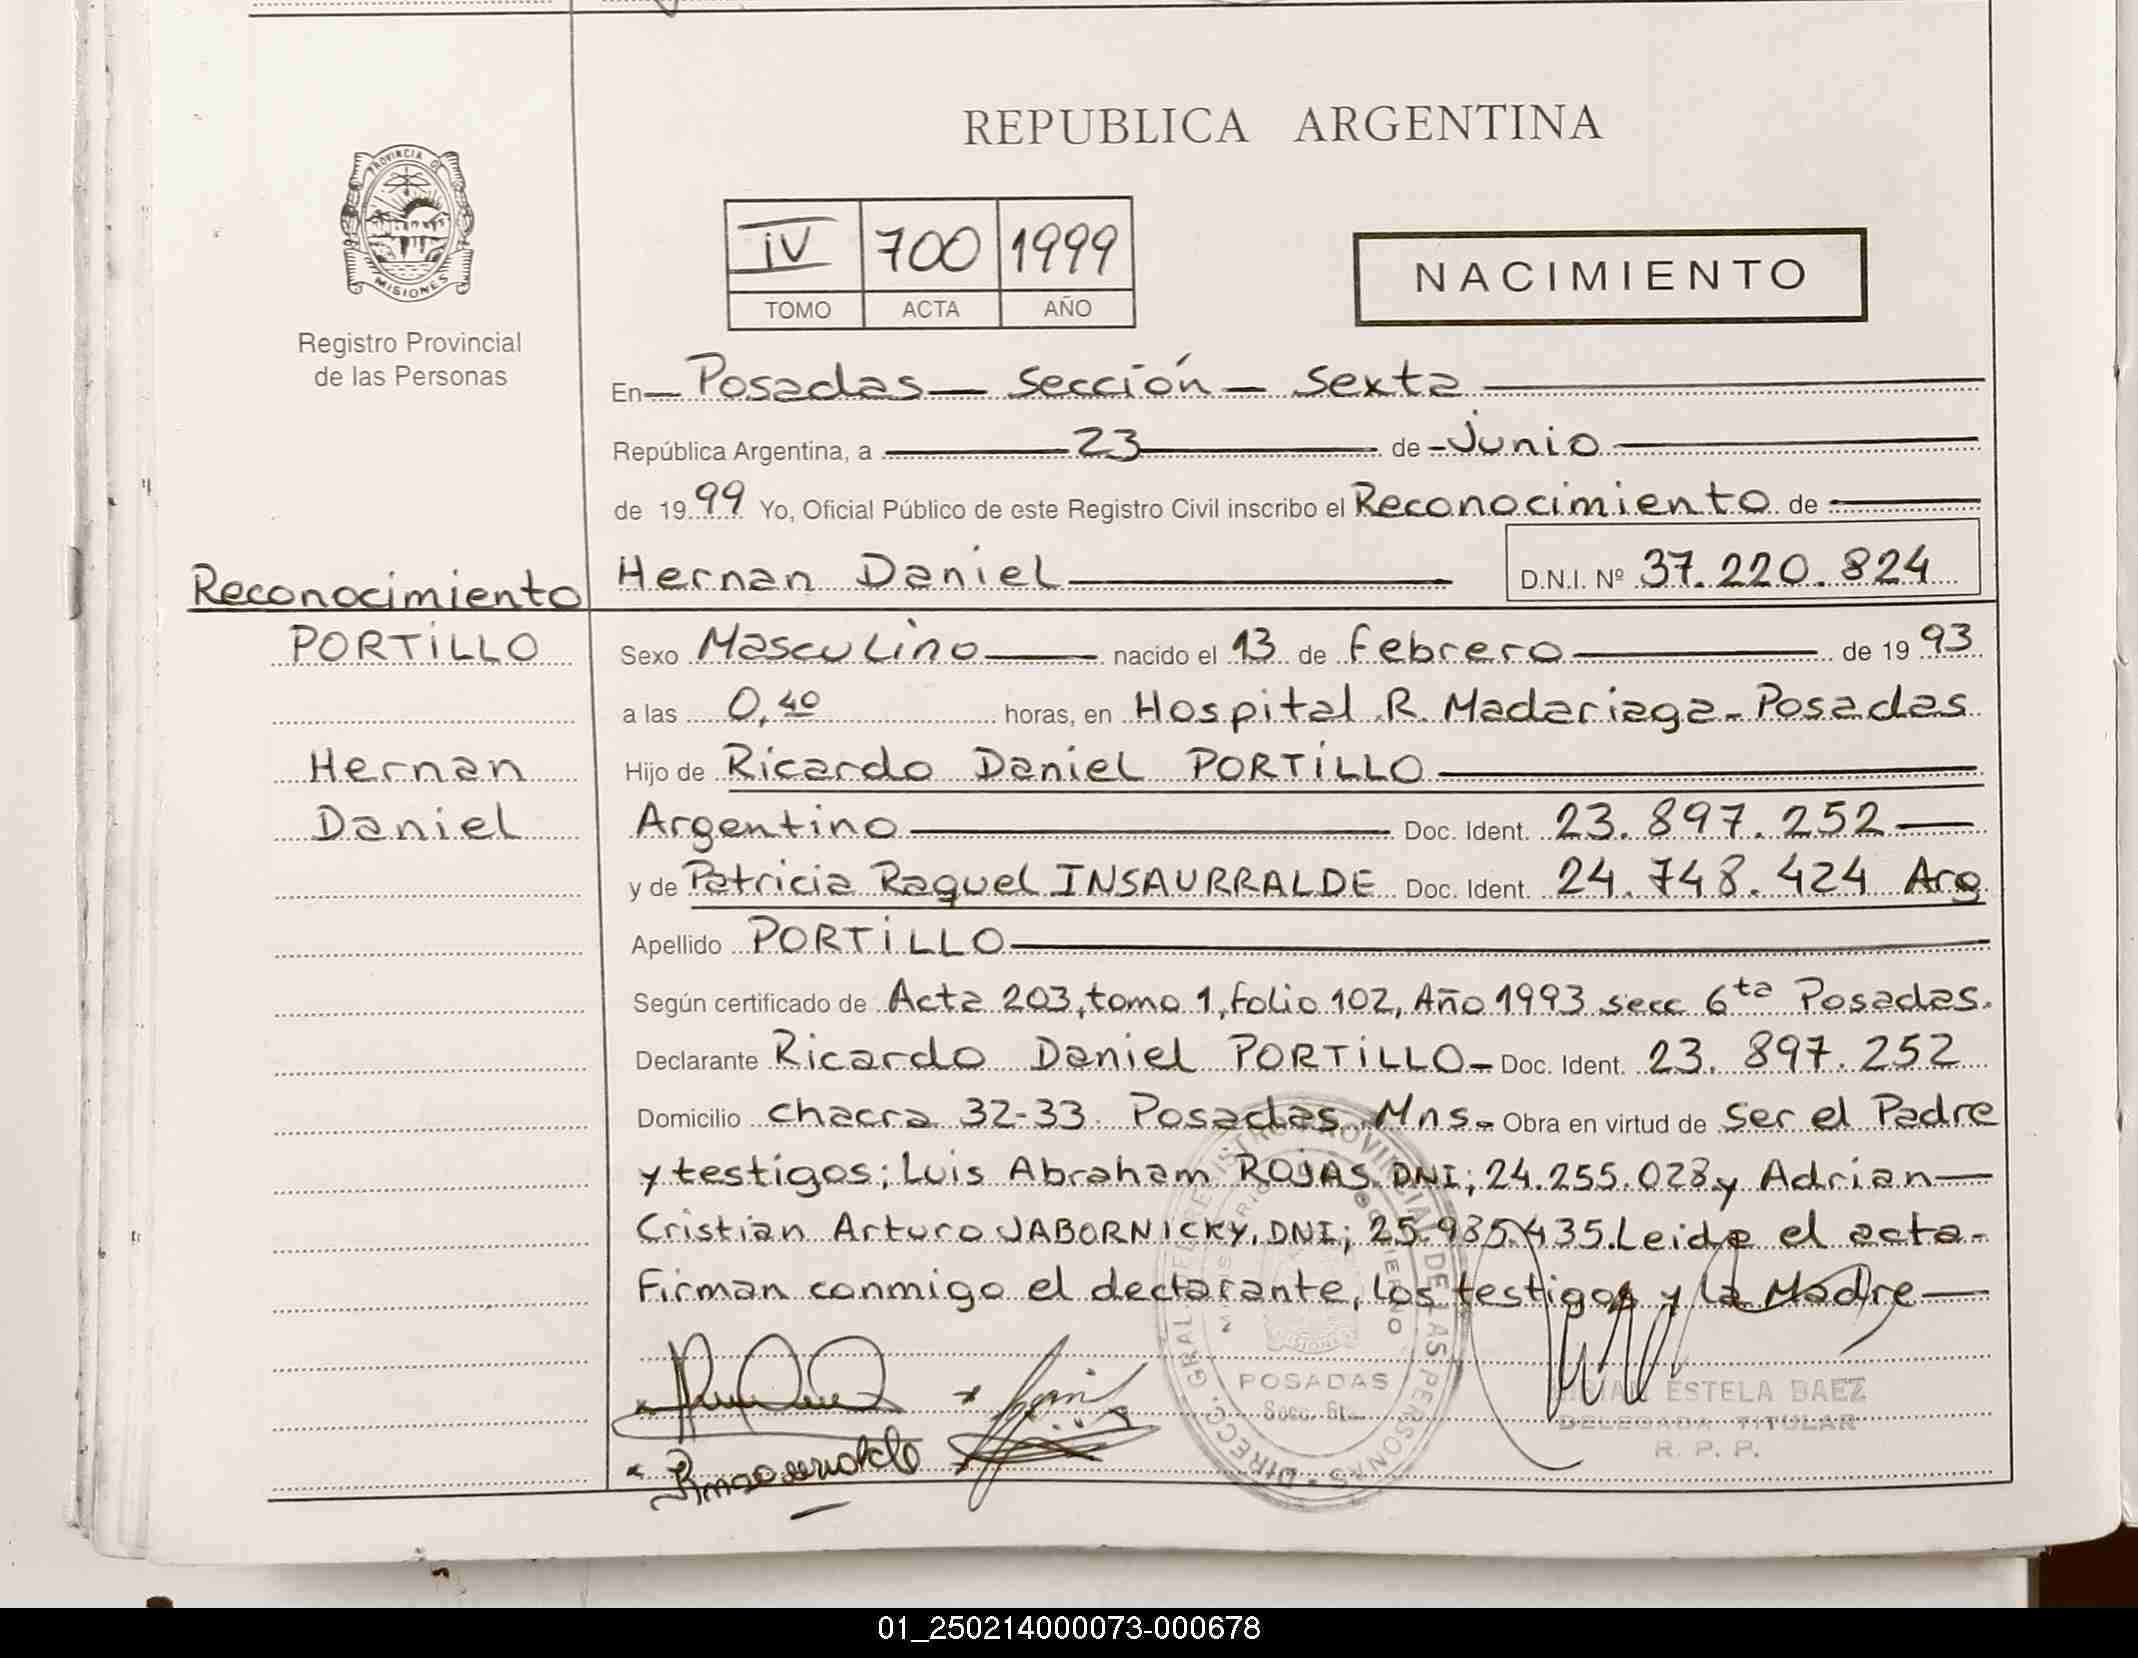 REPUBLICA ARGENTINA
PROVINCIA DE
MISIONES
Registro Provincial
de las Personas
IV 700 1999
TOMO ACTA AÑO
NACIMIENTO
En Posadas - Sección - Sexta
República Argentina, a 23 de Junio
de 1999 Yo, Oficial Público de este Registro Civil inscribo el Reconocimiento de
Hernan Daniel D.N.I. Nº 37.220.824
Reconocimiento
PORTILLO
Hernan
Daniel
Sexo Masculino nacido el 13 de Febrero de 1993
a las 0,40 horas, en Hospital R. Madariaga - Posadas
Hijo de Ricardo Daniel PORTILLO
Argentino Doc. Ident. 23.897.252
y de Patricia Raquel INSAURRALDE Doc. Ident. 24.748.424 Arg
Apellido PORTILLO
Según certificado de Acta 203, tomo 1, folio 102, Año 1993 secc 6ta Posadas.
Declarante Ricardo Daniel PORTILLO - Doc. Ident. 23.897.252
Domicilio chacra 32-33. Posadas Mns. Obra en virtud de Ser el Padre
y testigos; Luis Abraham ROJAS DNI; 24.255.028 y Adrian
Cristian Arturo JABORNICKY, DNI; 25.935.435. Leida el acta-
Firman conmigo el declarante, los testigos y la Madre
DIRECC. GRAL. DE REGISTRO PROVINCIAL DE LAS PERSONAS
POSADAS
Secc. 6ta.
ESTELA BAEZ
DELEGADA TITULAR
R. P. P.
01_250214000073-000678